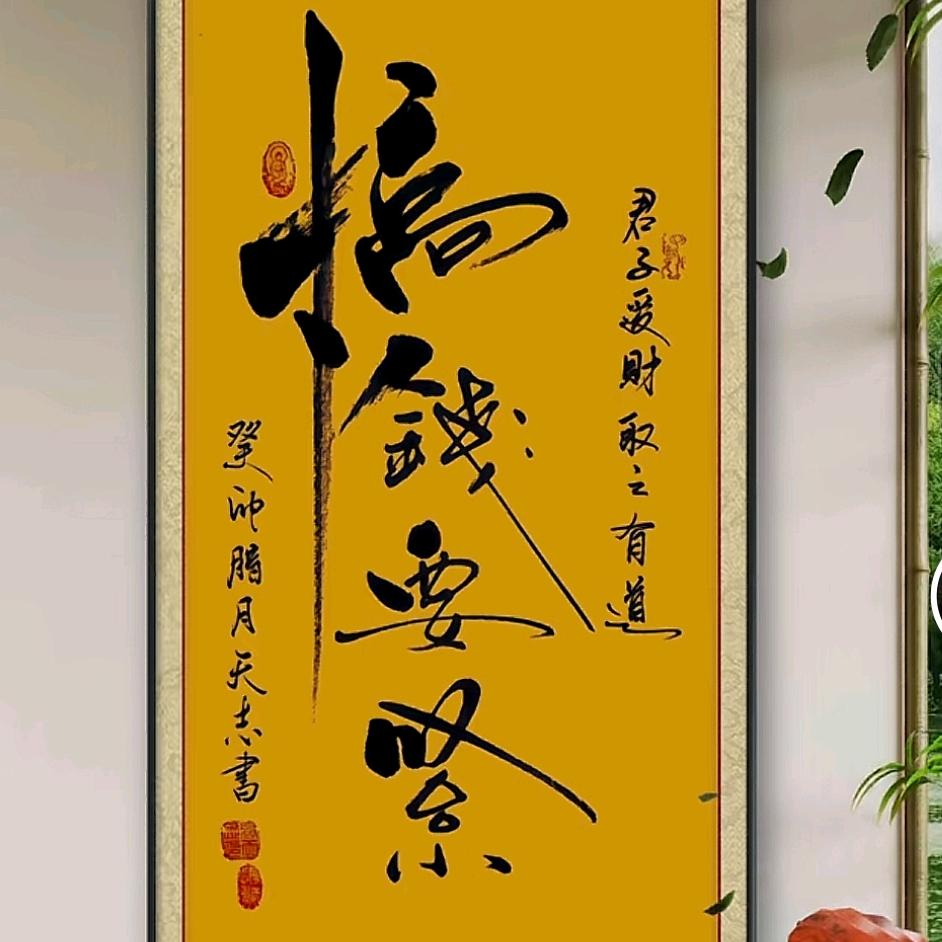 君子爱财取之有道
搞錢要緊
癸卯腊月天志書